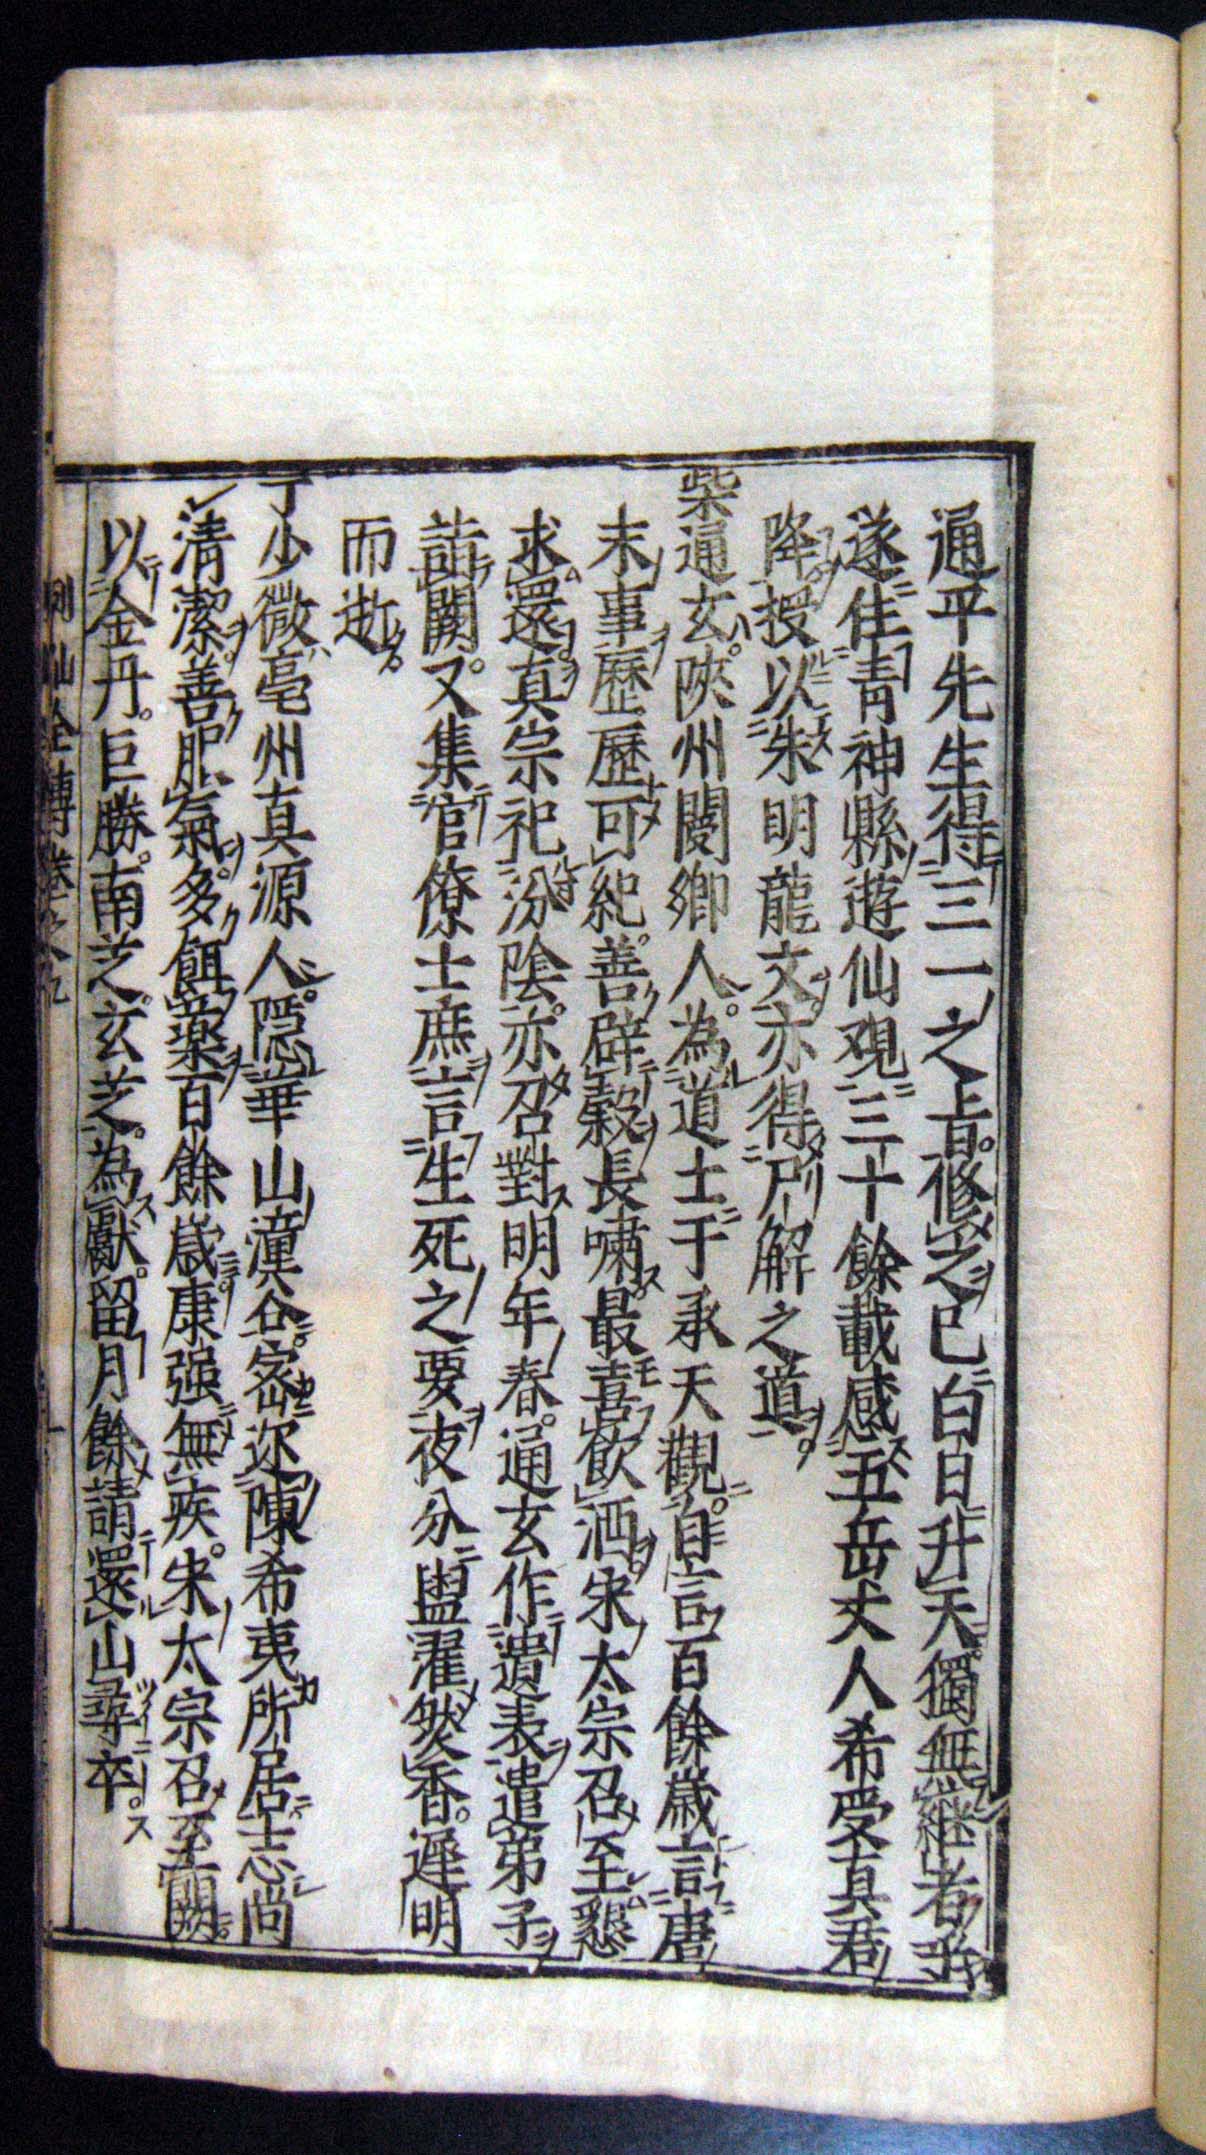 通平先生得三一之旨修之已白日升天獨無繼者乎
遂住青神縣遊仙觀三十餘載感五岳丈人希受真君
降授以朱明龍文亦得尸解之道
柴通玄陝州閿鄉人為道士于承天觀自言百餘歲言唐
末事歷歷可紀善辟穀長嘯最喜飲酒宋太宗召至懇
求還真宗祀汾陰亦召對明年春通玄作遺表遣弟子
詣闕又集官僚士庶言生死之要夜分盥濯然香遲明
而逝
丁少微亳州真源人隱華山潼谷密邇陳希夷所居志尚
清潔善服氣多餌藥百餘歲康强無疾宋太宗召至闕
以金丹巨勝南芝玄芝為獻留月餘請還山尋卒
列仙全傳卷之九